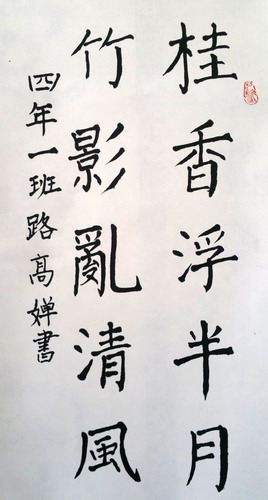 桂香浮半月
竹影亂清風
四年一班路高婵書